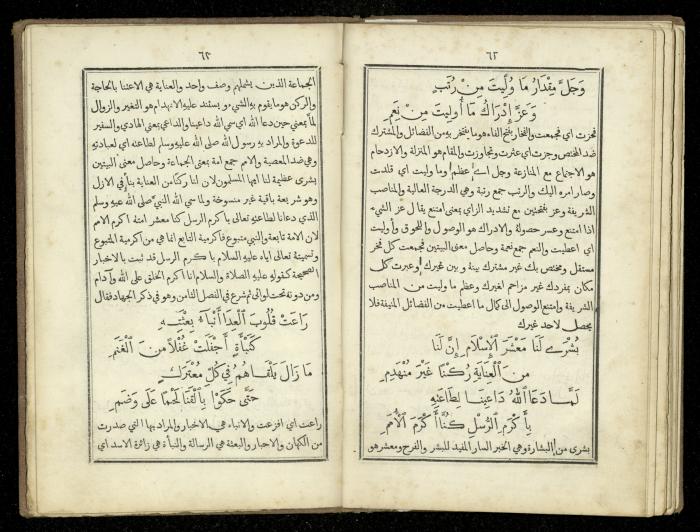 ٦٢
وَجَلَّ مِقْدَارُ مَا وُلِّيتَ مِنْ رُتَبٍ
وَعَزَّ إِدْرَاكُ مَا أُولِيتَ مِنْ نِعَمِ
فحزت اي فجمعت والفخار بفتح الفاء هو ما يفتخر به من الفضائل والمشترك
ضد المختص وجزت اي عثرت وتجاوزت والمقام هو المنزلة والازدحام
هو الاجتماع مع المنازعة وجل اي عظم وما وليت اي قلدت
وصار امره اليك والرتب جمع رتبة وهي الدرجة العالية والمناصب
الشريفة وعز بفتحتين مع تشديد الزاي بمعنى امتنع يقال عز الشيء
اذا امتنع وعسر حصوله والادراك هو الوصول واللحوق واوليت
اي اعطيت والنعم جمع نعمة وحاصل معنى البيتين فجمعت كل فخر
مستقل ومختص بك غير مشترك بينك وبين غيرك وعبرت كل
مكان بمفردك غير مزاحم لغيرك وعظم ما وليت من المناصب
الشريفة وامتنع الوصول الى كمال ما اعطيت من الفضائل المنيفة فلا
يحصل لاحد غيرك
بُشْرَى لَنَا مَعْشَرَ الْإِسْلَامِ إِنَّ لَنَا
مِنَ الْعِنَايَةِ رُكْنًا غَيْرَ مُنْهَدِمِ
لَمَّا دَعَا اللهُ دَاعِينَا لِطَاعَتِهِ
بِأَكْرَمِ الرُّسْلِ كُنَّا أَكْرَمَ الْأُمَمِ
بشرى من البشارة وهي الخبر السار المفيد للبشر والفرح ومعشر هو
٦٣
الجماعة الذين يشملهم وصف واحد والعناية هي الاعتنا بالحاجة
والركن هو ما يقوم به الشيء ويستند عليه والانهدام هو التغير والزوال
لما بمعنى حين دعا الله اي سمى الله داعينا والداعي بمعنى الهادي والسفير
للدعوة والمراد به رسول الله صلى الله عليه وسلم لطاعته اي لعبادته
وهي ضد المعصية والامم جمع امة بمعنى الجماعة وحاصل معنى البيتين
بشرى عظيمة لنا ايها المسلمون لان لنا ركنا من العناية بنا في الازل
وهو شريعة باقية غير منسوخة ولما سمى الله النبي صلى الله عليه وسلم
الذي دعانا لطاعته تعالى باكرم الرسل كنا معشر امته اكرم الامم
لان الامة تابعة والنبي متبوع فاكرمية التابع انما هي من اكرمية المتبوع
وتسميته تعالى اياه عليه السلام باكرم الرسل قد ثبت بالاخبار
الصحيحة كقوله عليه الصلاة والسلام انا اكرم الخلق على الله وآدام
ومن دونه تحت لوائي ثم شرع في الفصل الثامن وهو في ذكر الجهاد فقال
رَاعَتْ قُلُوبَ الْعِدَا أَنْبَاءُ بِعْثَتِهِ
كَنَبْأَةٍ أَجْفَلَتْ غُفْلًا مِنَ الْغَنَمِ
مَا زَالَ يَلْقَاهُمُ فِي كُلِّ مُعْتَرَكٍ
حَتَّى حَكَوْا بِالْقَنَا لَحْمًا عَلَى وَضَمِ
راعت اي افزعت والانباء هي الاخبار والمراد بها التي صدرت
من الكهان والاحبار والبعثة هي الرسالة والنبأة هي زائرة الاسد اي